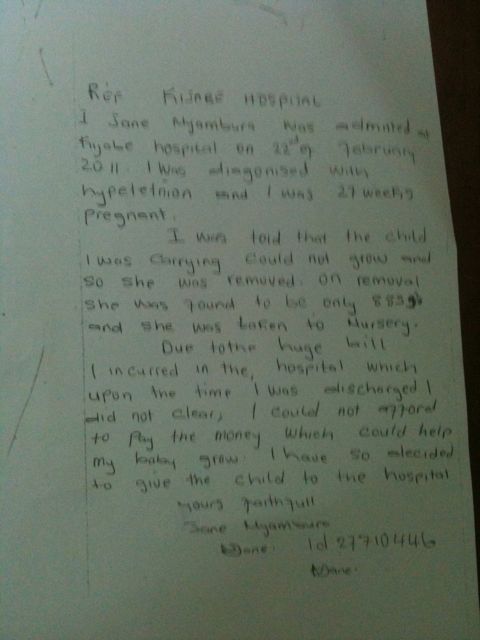 REF KIJABE HOSPITAL
I Jane Nyambura was admited at
Kijabe hospital on 22nd of February
2011. I was diagonised with
hypeletnion and I was 27 weeks
pregnant.
I was told that the child
I was carrying could not grow and
so she was removed. On removal
she was found to be only 883g
and she was taken to Nursery.
Due to the huge bill
I incurred in the, hospital which
upon the time I was discharged I
did not clear, I could not afford
to pay the money which could help
my baby grow. I have so decided
to give the child to the hospital
yours faithfull
Jane Nyambura
Id 27710446